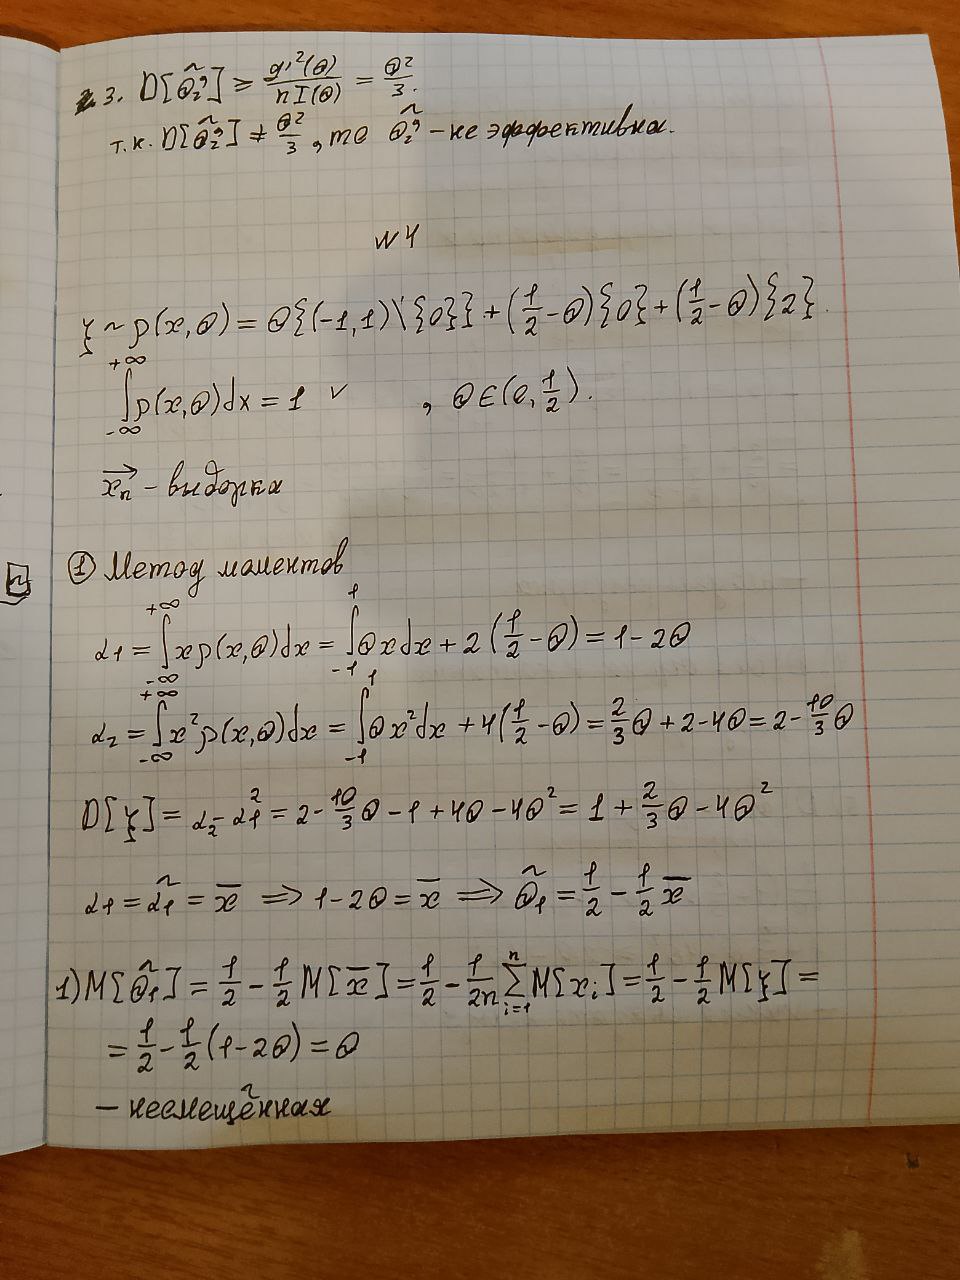 3. D[θ̃₂'] ≥ g'²(θ)/(nI(θ)) = θ²/3.
т.к. D[θ̃₂'] ≠ θ²/3, то θ̃₂' – не эффективна.
N4
ξ ~ p(x,θ) = θ{(-1,1)\{0}} + (1/2-θ){0} + (1/2-θ){2}.
∫_{-∞}^{+∞} p(x,θ)dx = 1 ✓ , θ∈(0,1/2).
x⃗ₙ – выборка
① Метод моментов
α₁ = ∫_{-∞}^{+∞} xp(x,θ)dx = ∫_{-1}^{1} θxdx + 2(1/2-θ) = 1-2θ
α₂ = ∫_{-∞}^{+∞} x²p(x,θ)dx = ∫_{-1}^{1} θx²dx + 4(1/2-θ) = 2/3θ + 2-4θ = 2-10/3θ
D[ξ] = α₂-α₁² = 2-10/3θ-1+4θ-4θ² = 1+2/3θ-4θ²
α₁ = α̃₁ = x̄ ⟹ 1-2θ = x̄ ⟹ θ̃₁ = 1/2 - 1/2x̄
1) M[θ̃₁] = 1/2 - 1/2M[x̄] = 1/2 - 1/2n ∑_{i=1}^{n} M[xᵢ] = 1/2 - 1/2M[ξ] =
= 1/2 - 1/2(1-2θ) = θ
– несмещённая